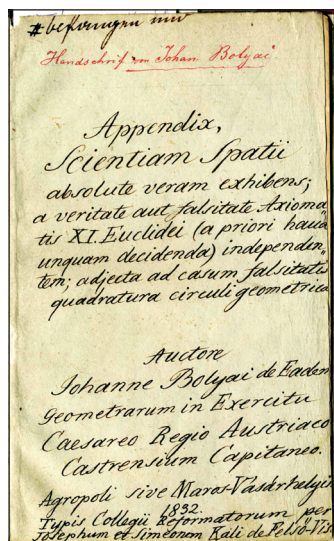 # befangen nur
Handschrift von Johan Bolyai.
Appendix,
Scientiam Spatii
absolute veram exhibens;
a veritate aut falsitate Axioma
tis XI. Euclidei (a priori haud
unquam decidenda) independen„
tem; adjecta ad casum falsitatis
quadratura circuli geometrica
Auctore
Johanne Bolyai de Eadem
Geometrarum in Exercitu
Caesareo Regio Austriaco
Castrensium Capitaneo.
Agropoli sive Maros-Vásárhelyin
1832.
Typis Collegii Reformatorum per
Josephum et Simeonem Kali de Felső-Vist